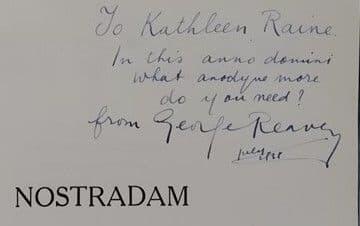 To Kathleen Raine.
In this anno domini
what anodyne more
do you need?
from George Reavey
July
NOSTRADAM